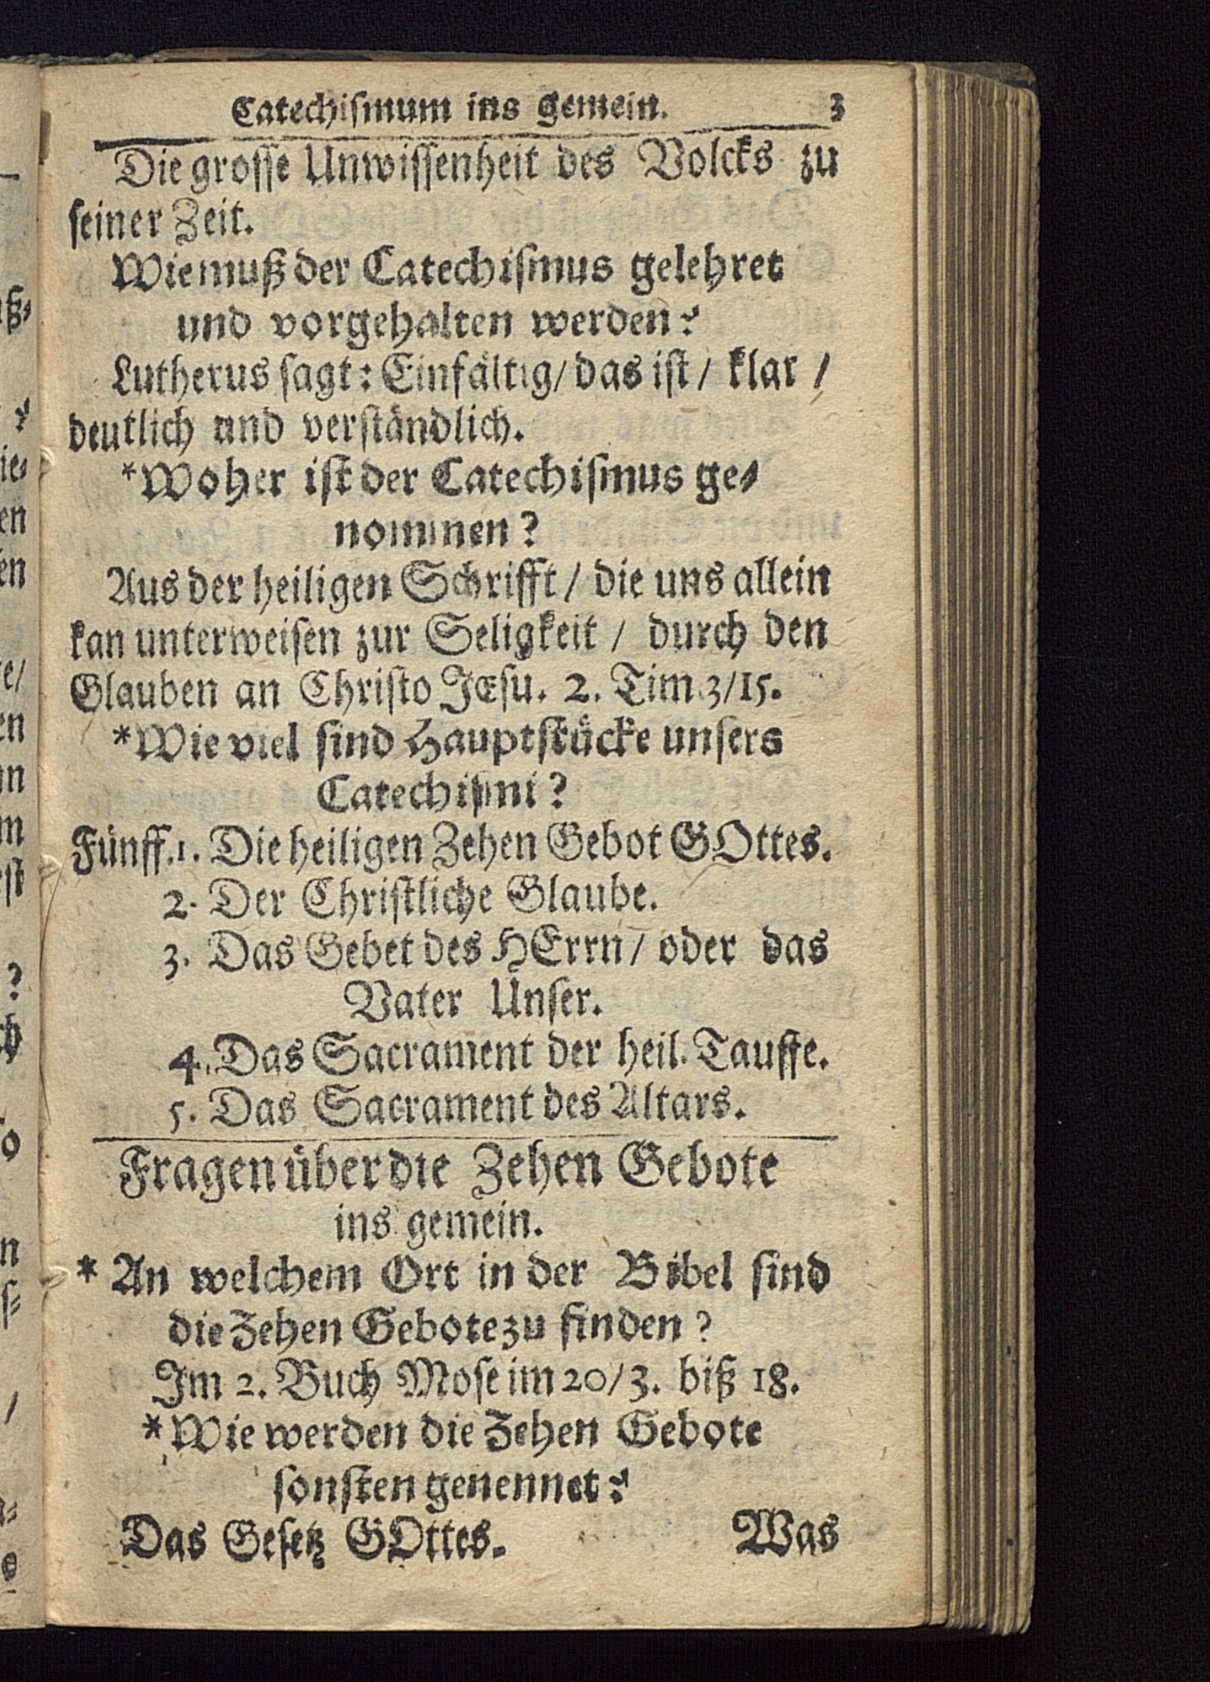 Catechiſmum ins gemein. 3
Die groſſe Unwiſſenheit des Volcks zu
ſeiner Zeit.
Wie muß der Catechiſmus gelehret
und vorgehalten werden?
Lutherus ſagt: Einfältig/ das iſt/ klar /
deutlich und verſtändlich.
*Woher iſt der Catechiſmus ge-
nommen?
Aus der heiligen Schrifft / die uns allein
kan unterweiſen zur Seligkeit / durch den
Glauben an Chriſto JEſu. 2. Tim. 3/15.
*Wie viel ſind Hauptſtücke unſers
Catechiſmi?
Fünff. 1. Die heiligen Zehen Gebot GOttes.
2. Der Chriſtliche Glaube.
3. Das Gebet des HErrn/ oder das
Vater Unſer.
4. Das Sacrament der heil. Tauffe.
5. Das Sacrament des Altars.
Fragen über die Zehen Gebote
ins gemein.
* An welchem Ort in der Bibel ſind
die Zehen Gebote zu finden?
Im 2. Buch Moſe im 20/3. biß 18.
*Wie werden die Zehen Gebote
ſonſten genennet?
Das Geſetz GOttes. Was